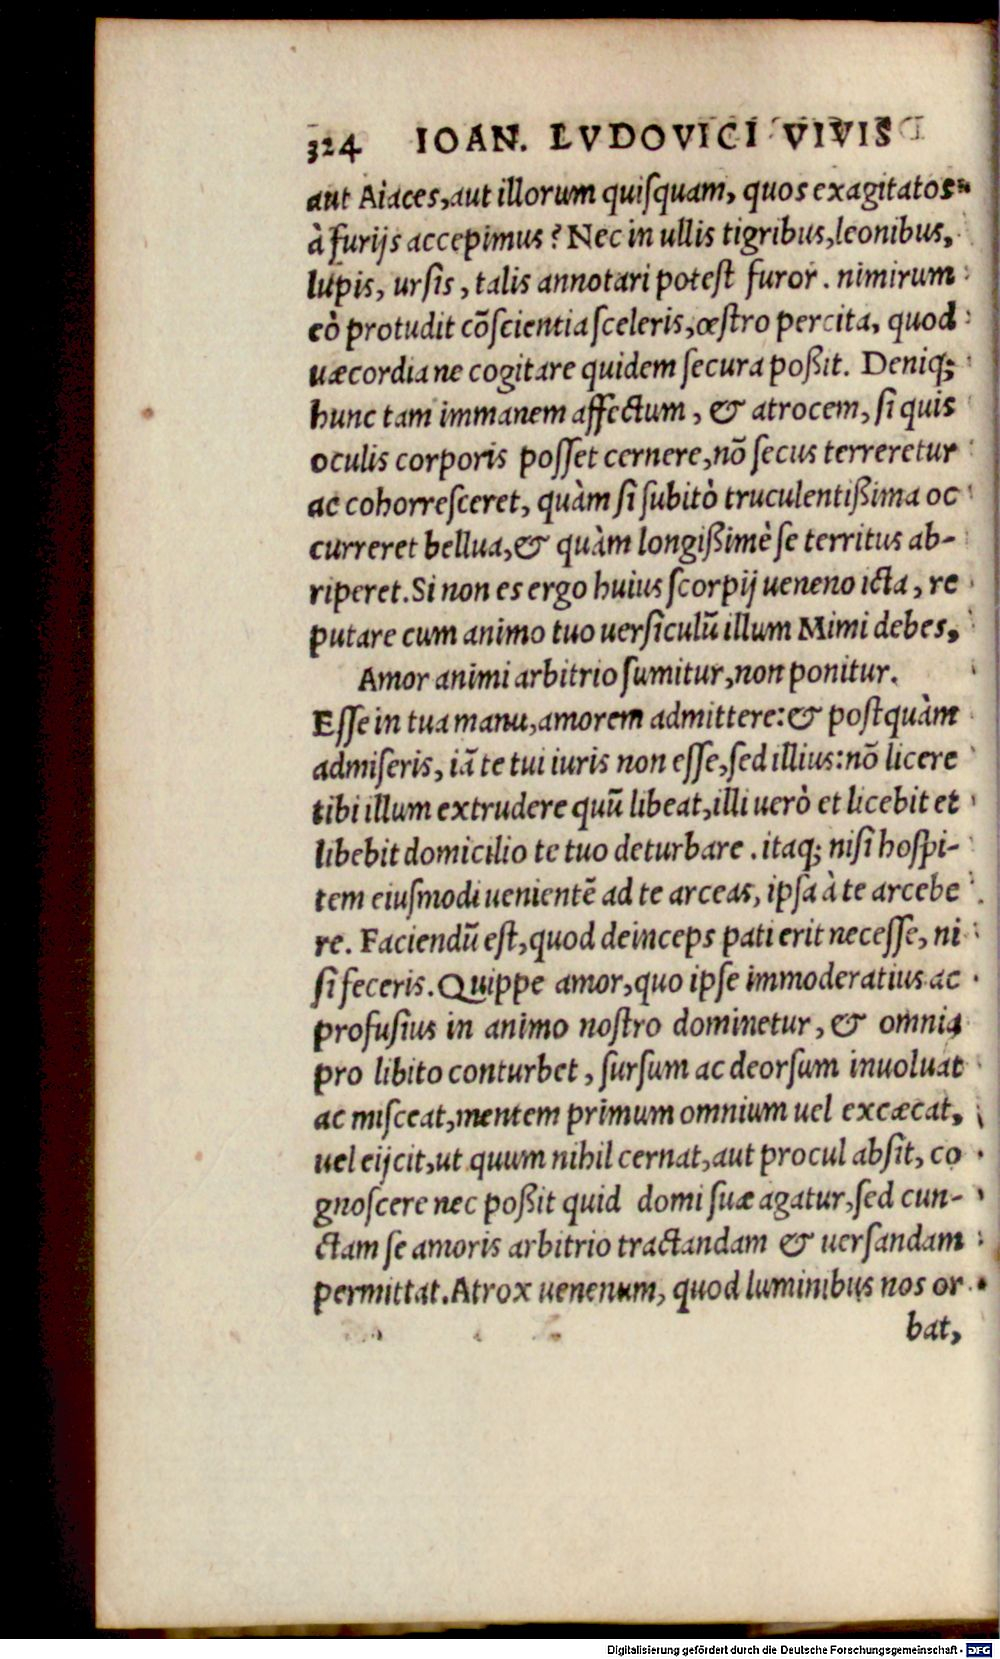 324 IOAN. LVDOVICI VIVIS
aut Aiaces, aut illorum quiſquam, quos exagitatos
à furijs accepimus? Nec in ullis tigribus, leonibus,
lupis, urſis, talis annotari poteſt furor. nimirum
eò protudit cōſcientia ſceleris, œſtro percita, quod
uæcordia ne cogitare quidem ſecura poßit. Deniq;
hunc tam immanem affectum, & atrocem, ſi quis
oculis corporis poſſet cernere, nō ſecus terreretur
ac cohorreſceret, quàm ſi ſubitò truculentißima oc
curreret bellua, & quàm longißimè ſe territus ab-
riperet. Si non es ergo huius ſcorpij ueneno icta, re
putare cum animo tuo uerſiculū illum Mimi debes,
Amor animi arbitrio ſumitur, non ponitur.
Eſſe in tua manu, amorem admittere: & poſtquàm
admiſeris, iā te tui iuris non eſſe, ſed illius: nō licere
tibi illum extrudere quū libeat, illi uerò et licebit et
libebit domicilio te tuo deturbare. itaq; niſi hoſpi-
tem eiuſmodi uenientē ad te arceas, ipſa à te arcebe
re. Faciendū eſt, quod deinceps pati erit neceſſe, ni
ſi feceris. Quippe amor, quo ipſe immoderatius ac
profuſius in animo noſtro dominetur, & omnia
pro libito conturbet, ſurſum ac deorſum inuoluat
ac miſceat, mentem primum omnium uel excæcat,
uel eijcit, ut quum nihil cernat, aut procul abſit, co
gnoſcere nec poßit quid domi ſuæ agatur, ſed cun-
ctam ſe amoris arbitrio tractandam & uerſandam
permittat. Atrox uenenum, quod luminibus nos or
bat,
Digitalisierung gefördert durch die Deutsche Forschungsgemeinschaft - DFG